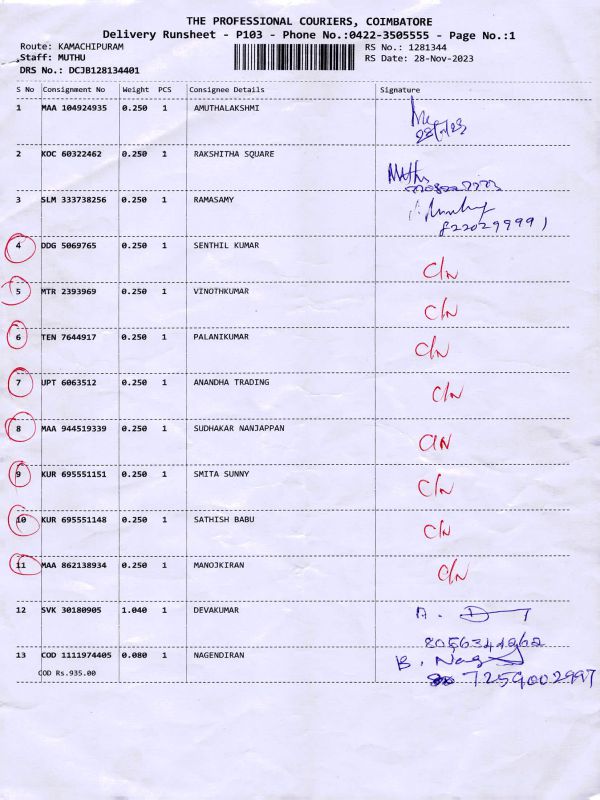 THE PROFESSIONAL COURIERS, COIMBATORE
Delivery Runsheet - P103 - Phone No.:0422-3505555 - Page No.:1
Route: KAMACHIPURAM RS No.: 1281344
Staff: MUTHU RS Date: 28-Nov-2023
DRS No.: DCJB128134401
S No Consignment No Weight PCS Consignee Details Signature
1 MAA 104924935 0.250 1 AMUTHALAKSHMI
28/11/23
2 KOC 60322462 0.250 1 RAKSHITHA SQUARE
Muthu
3 SLM 333738256 0.250 1 RAMASAMY
8220299991
4 DDG 5069765 0.250 1 SENTHIL KUMAR
C/N
5 MTR 2393969 0.250 1 VINOTHKUMAR
C/N
6 TEN 7644917 0.250 1 PALANIKUMAR
C/N
7 UPT 6063512 0.250 1 ANANDHA TRADING
C/N
8 MAA 944519339 0.250 1 SUDHAKAR NANJAPPAN
C/N
9 KUR 695551151 0.250 1 SMITA SUNNY
C/N
10 KUR 695551148 0.250 1 SATHISH BABU
C/N
11 MAA 862138934 0.250 1 MANOJKIRAN
C/N
12 SVK 30180905 1.040 1 DEVAKUMAR A. D
8056344262
13 COD 1111974405 0.080 1 NAGENDIRAN B. Nag
COD Rs.935.00 7259002997